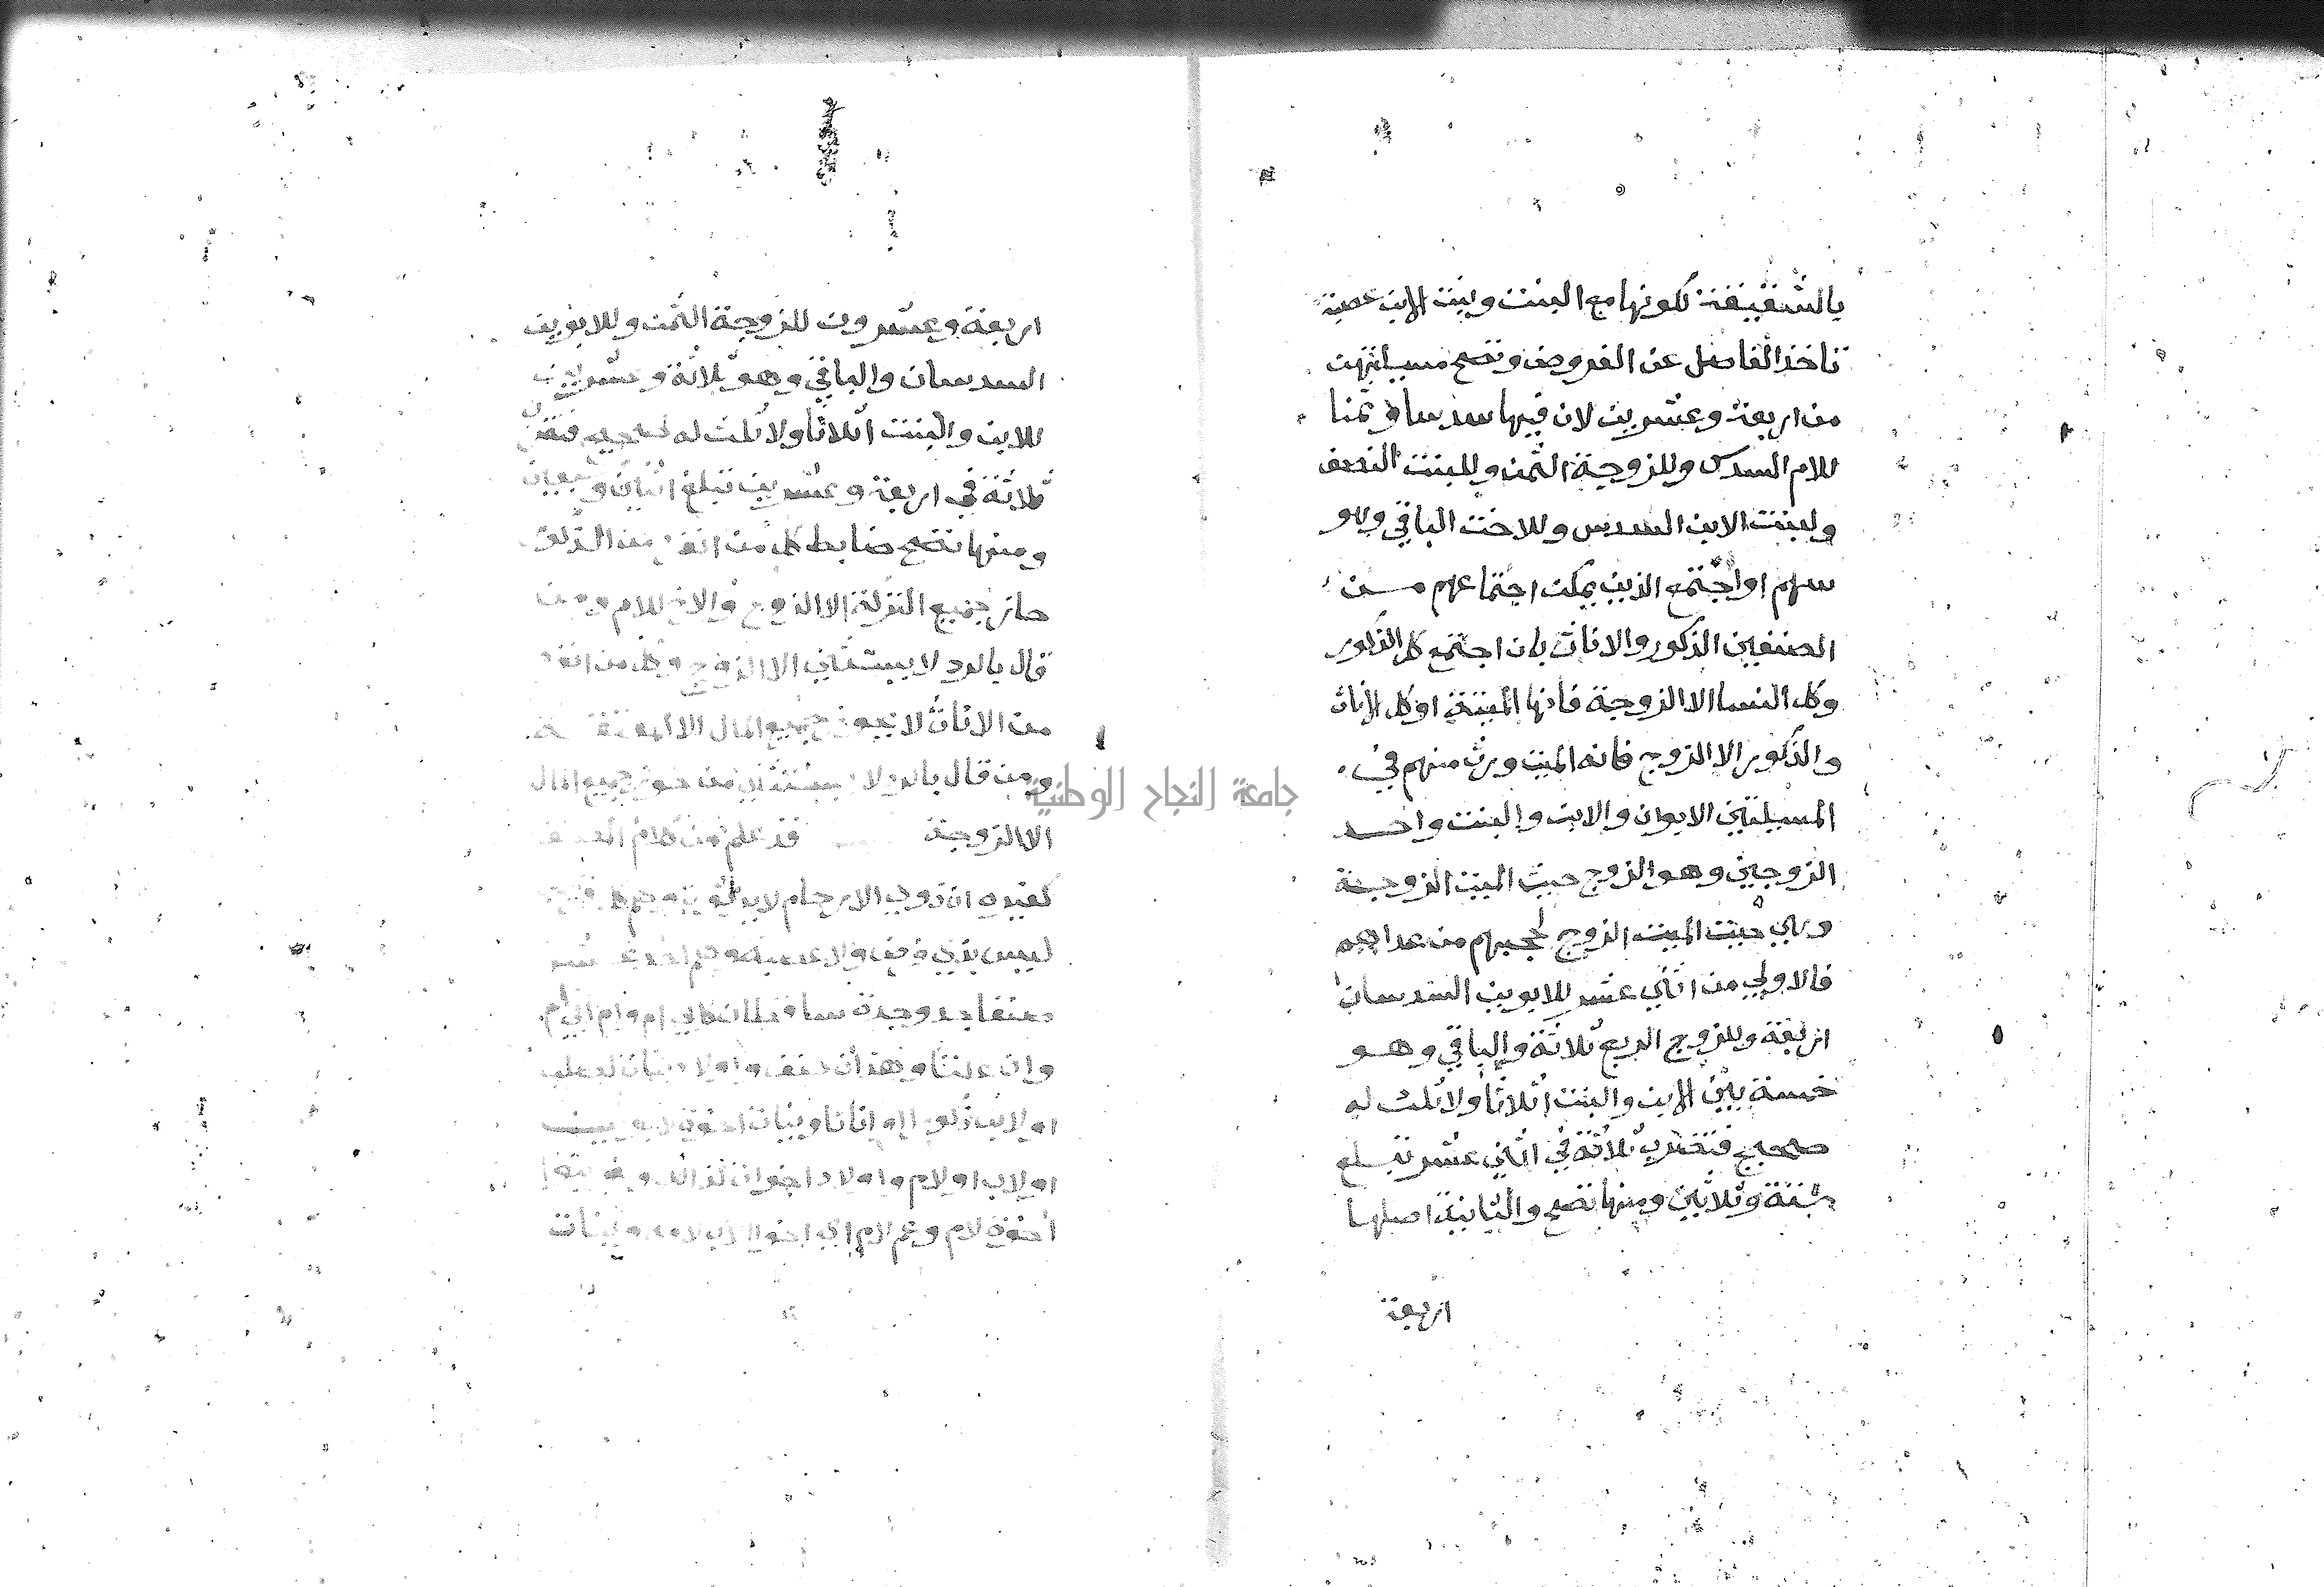 بالشقيقة لكونها مع البنت وبنت الابن عصبة
تاخذ الفاضل عن الفروض وتصح مسيلتهن
من اربعة وعشرين لان فيها سدسا وثمنا
للام السدس وللزوجة الثمن وللبنت النصف
ولبنت الابن السدس وللاخت الباقي وهو
سهم او اجتمع الذين يمكن اجتماعهم من
الصنفين الذكور والاناث بان اجتمع كل الذكور
وكل النسا الا الزوجة فانها الميتة او كل الاناث
والذكور الا الزوج فانه الميت ورث منهم في
المسيلتين الابوان والابن والبنت واحد
الزوجين وهو الزوج حيث الميت الزوجة
وهي حيث الميت الزوج لحجبهم من عداهم
فالاولي من اثني عشر للابوين السدسان
اربعة وللزوج الربع ثلاثة والباقي وهو
خمسة بين الابن والبنت اثلاثا ولا ثلث له
صحيح فتضرب ثلاثة في اثني عشر تبلغ
ستة وثلاثين ومنها تصح والثانية اصلها
اربعة
اربعة وعشرون للزوجة الثمن وللابوين
السدسان والباقي وهو ثلاثة وعشر
للابن والبنت اثلاثا ولا ثلث له صحيح فتضرب
ثلاثة في اربعة وعشرين تبلغ اثنان وسبعين
ومنها تصح ضابط كل من انفرد من الذكور
حاز جميع التركة الا الزوج والاخ للام ومن
قال بالرد لا يستثني الا الزوج وكل من انفرد
من الاناث لا يحوز جميع المال الا المعتقة
ومن قال بالرد لا يستثني من حوز جميع المال
الا الزوجة قد علم من كلام المصنف
كغيره ان ذوي الارحام لا يرثون وهم
ليس بذي فرض ولا عصبة وهم احد عشر
جد وجدة ساقطان كابي ام وام ابي ام
وان علتا وهذان صنف واولاد بنات لصلب
او لابن ذكورا او اناثا وبنات اخوة لابوين
او لاب او لام واولاد اخوات كذلك وبنو
اخوة لام وعم لام اي اخو الاب لامه وبنات
جامعة النجاح الوطنية